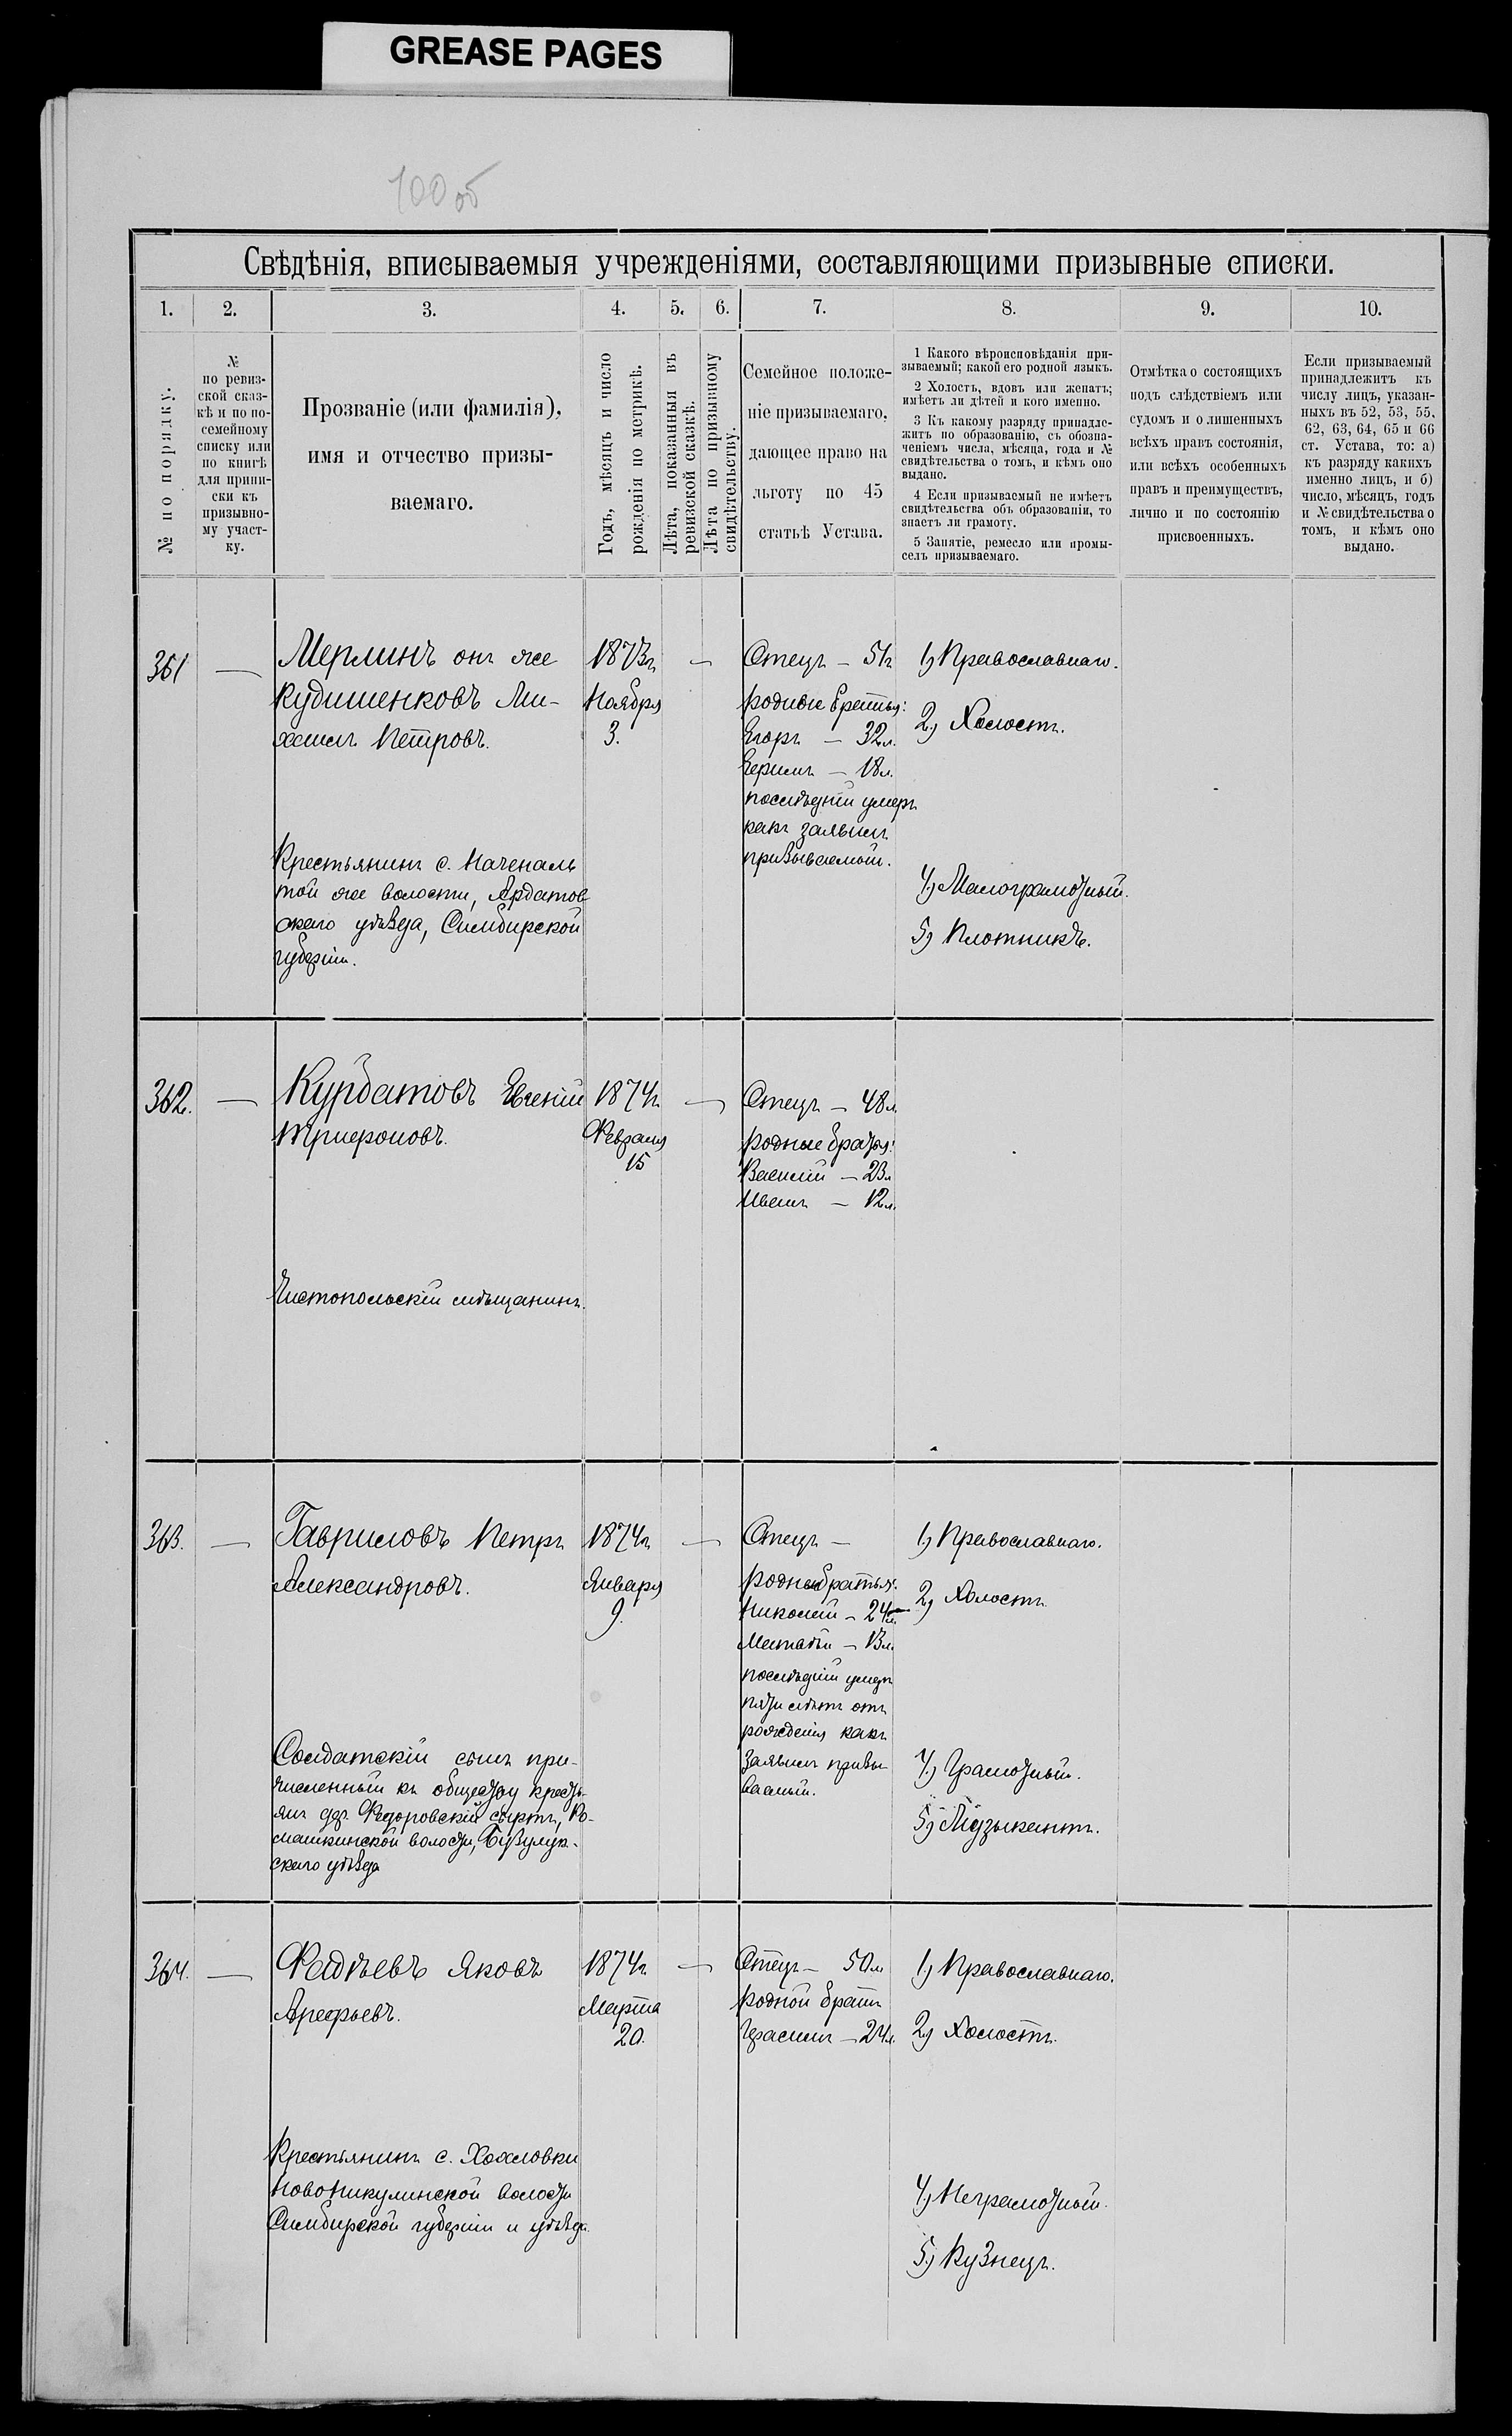 GREASE PAGES
100 об
Свѣдѣнія, вписываемыя учрежденіями, составляющими призывные списки.
1. 2. 3. 4. 5. 6. 7. 8. 9. 10.
№ по порядку.
№
по ревиз-
ской сказ-
кѣ и по по-
семейному
списку или
по книгѣ
для припи-
ски къ
призывно-
му участ-
ку.
Прозваніе (или фамилія),
имя и отчество призы-
ваемаго.
Годъ, мѣсяцъ и число
рожденія по метрикѣ.
Лѣта, показанныя въ
ревизской сказкѣ.
Лѣта по призывному
свидѣтельству.
Семейное положе-
ніе призываемаго,
дающее право на
льготу по 45
статьѣ Устава.
1 Какого вѣроисповѣданія при-
зываемый; какой его родной языкъ.
2 Холостъ, вдовъ или женатъ;
имѣетъ ли дѣтей и кого именно.
3 Къ какому разряду принадле-
житъ по образованію, съ обозна-
ченіемъ числа, мѣсяца, года и №
свидѣтельства о томъ, и кѣмъ оно
выдано.
4 Если призываемый не имѣетъ
свидѣтельства объ образованіи, то
знаетъ ли грамоту.
5 Занятіе, ремесло или промы-
селъ призываемаго.
Отмѣтка о состоящихъ
подъ слѣдствіемъ или
судомъ и о лишенныхъ
всѣхъ правъ состоянія,
или всѣхъ особенныхъ
правъ и преимуществъ,
лично и по состоянію
присвоенныхъ.
Если призываемый
принадлежитъ къ
числу лицъ, указан-
ныхъ въ 52, 53, 55,
62, 63, 64, 65 и 66
ст. Устава, то: а)
къ разряду какихъ
именно лицъ, и б)
число, мѣсяцъ, годъ
и № свидѣтельства о
томъ, и кѣмъ оно
выдано.
361 —
Мерлинъ онъ же
Кудишенковъ Ми-
хаилъ Петровъ.
Крестьянинъ с. Наченалъ
той же волости, Ардатов
скаго уѣзда, Симбирской
губерніи.
1873г.
Ноября
3.
—
Отецъ — 51г
родные братья:
Егоръ — 32л.
Герасимъ — 18л.
послѣдній умеръ
какъ заявилъ
призываемый.
1) Православнаго.
2) Холостъ.
4) Малограмотный.
5) Плотникъ.
362. —
Курбатовъ Евгеній
Трифоновъ.
Чистопольскій мѣщанинъ.
1874г.
Февраля
15
—
Отецъ — 48л
родные братья:
Василій — 23л
Иванъ — 12л.
363. —
Гавриловъ Петръ
Александровъ.
Солдатскій сынъ при-
численный къ обществу кресть-
янъ дер. Федоровскій сыртъ, Ро-
машкинской волости, Бузулук-
скаго уѣзда
1874г.
Января
9.
—
Отецъ —
родные братья.
Николай — 24л.
Матвѣй — 13л.
послѣдній умеръ
пяти лѣтъ отъ
рожденія какъ
заявилъ призы
ваемый.
1) Православнаго.
2) Холостъ
4) Грамотный.
5) Музыкантъ.
364. —
Фадѣевъ Яковъ
Арефьевъ.
Крестьянинъ с. Хохловки
Новоникулинской волости
Симбирской губерніи и уѣзда.
1874г.
Марта
20.
—
Отецъ — 50л
родной братъ
Герасимъ — 24л.
1) Православнаго.
2) Холостъ.
4) Неграмотный.
5) Кузнецъ.